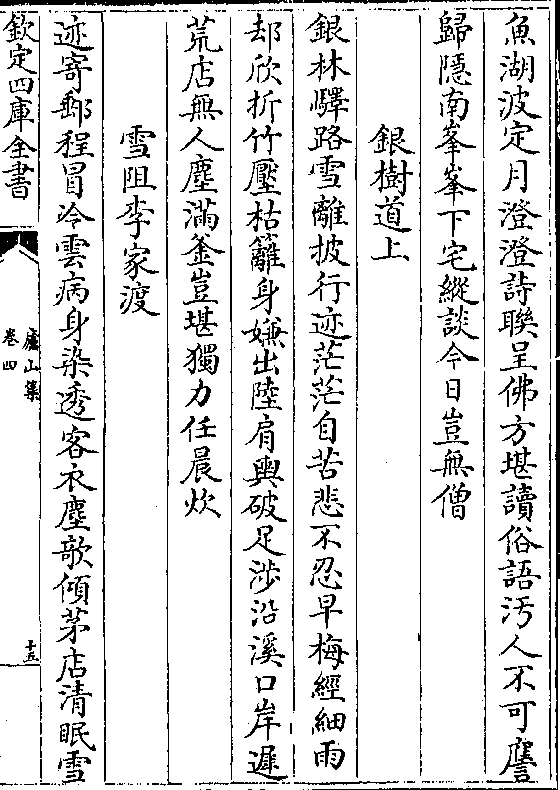 魚湖波定月澄澄詩聯呈佛方堪讀俗語汚人不可譍
歸隱南峯峯下宅縱談今日豈無僧
銀樹道上
銀林驛路雪離披行迹茫茫自苦悲不忍早梅經細雨
却欣折竹壓枯籬身嫌出陸肩輿破足涉沿溪口岸遲
荒店無人塵滿釜豈堪獨力任晨炊
雪阻李家渡
迹寄郵程冒冷雲病身染透客衣塵欹傾茅店清眠雪
欽定四庫全書
廬山集
卷四
十五